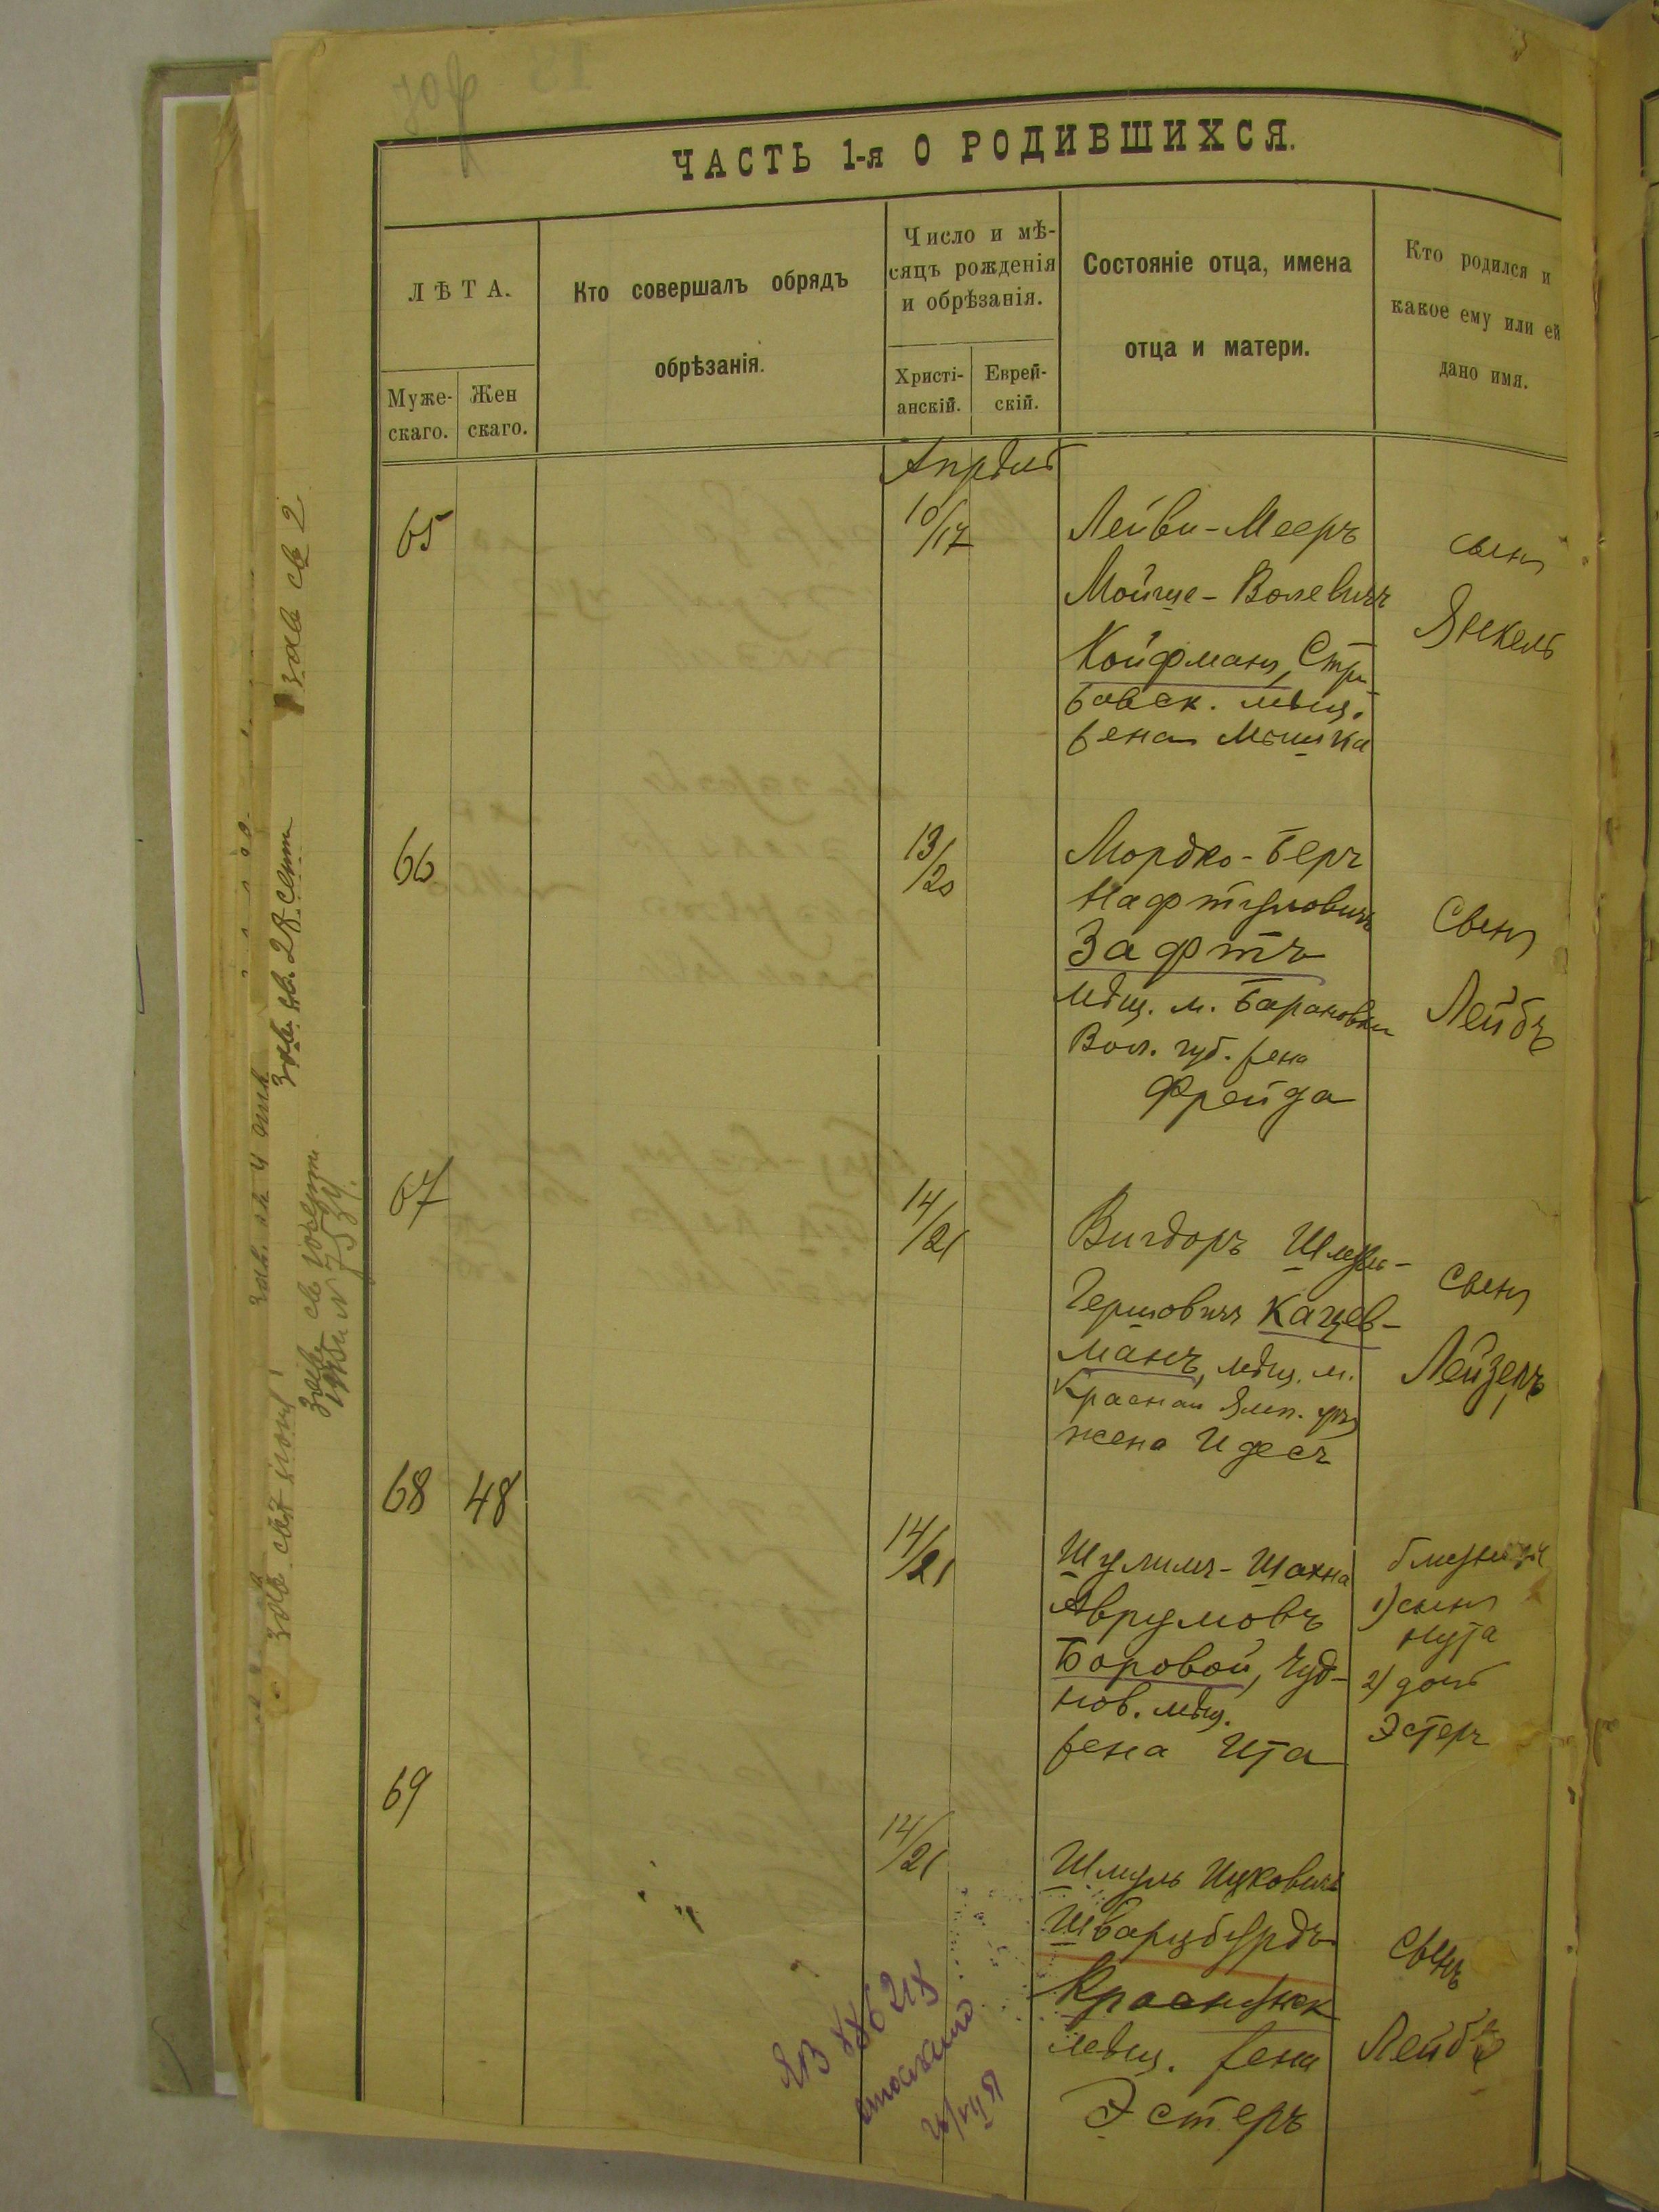 ЧАСТЬ 1-я О РОДИВШИХСЯ.
ЛѢТА.
Муже-
скаго.
Жен
скаго.
Кто совершалъ обрядъ
обрѣзанія.
Число и мѣ-
сяцъ рожденія
и обрѣзанія.
Христі-
анскій.
Еврей-
скій.
Состояніе отца, имена
отца и матери.
Кто родился и
какое ему или ей
дано имя.
Апрѣль
65
10/17
Лейви-Мееръ
Мойше-Волевичъ
Койфманъ, Стри-
бовск. мѣщ.
жена
сынъ
Янкель
66
13/20
Мордко-Беръ
Нафтуловичъ
Зафтъ
мѣщ. м. Барановки
Вол. губ. жена
Фрейда
Сынъ
Лейбъ
67
14/21
Вигдоръ Шмуль-
Гершовичъ Кацев-
манъ, мѣщ. м.
жена Идесъ
Сынъ
Лейзеръ
68 48
14/21
Шулимъ-Шахна
Аврумовъ
Боровой, Чуд-
нов. мѣщ.
жена Ита
близнецы
1) сынъ
Нута
2) дочь
Эстеръ
69
14/21
Шмуль Ицковичъ
Шварцбурдъ
мѣщ. жена
Эстеръ
Сынъ
Лейбъ